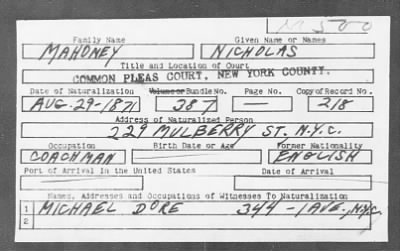 M 500
Family Name Given Name or Names
MAHONEY NICHOLAS
Title and Location of Court
COMMON PLEAS COURT, NEW YORK COUNTY.
Date of Naturalization Volume or Bundle No. Page No. Copy of Record No.
AUG. 29-1871 387 — 218
Address of Naturalized Person
229 MULBERRY ST. N.Y.C.
Occupation Birth Date or Age Former Nationality
COACHMAN ENGLISH
Port of Arrival in the United States Date of Arrival
Names, Addresses and Occupations of Witnesses To Naturalization
1 MICHAEL DORE 344 - 1 AVE., N.Y.C.
2